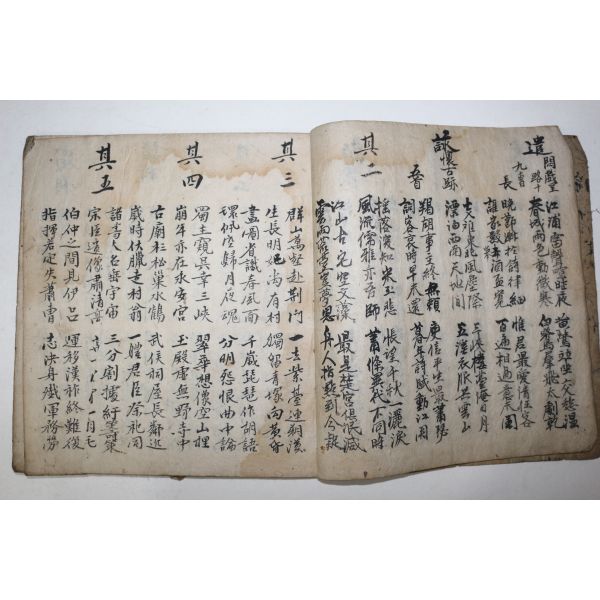 遣悶戲呈路十九曹長
江浦雷聲喧昨夜 黃鶯並坐交愁濕
春城雨色動微寒 白鷺羣飛太劇乾
晚節漸於詩律細 惟君最愛清狂客
誰家數去酒盃寬 百遍相過意未闌
詠懷古跡 五首
支離東北風塵際 三峽樓臺淹日月
漂泊西南天地間 五溪衣服共雲山
羯胡事主終無賴 庾信平生最蕭瑟
詞客哀時早未還 暮年詩賦動江関
其二
搖落深知宋玉悲 悵望千秋一灑淚
風流儒雅亦吾師 蕭條異代不同時
江山古宅空文藻 最是楚宮俱泯滅
雲雨荒臺豈夢思 舟人指點到今疑
其三
群山萬壑赴荊門 一去紫臺連朔漠
生長明妃尚有村 獨留青塚向黃昏
畫圖省識春風面 千歲琵琶作胡語
環佩空歸月夜魂 分明怨恨曲中論
其四
蜀主窺吳幸三峽 翠華想像空山裡
崩年亦在永安宮 玉殿虛無野寺中
古廟杉松巢水鶴 武侯祠屋長鄰近
歲時伏臘走村翁 一體君臣祭祀同
其五
諸葛大名垂宇宙 三分割據紆籌策
宗臣遺像肅清高 一 毛
伯仲之間見伊呂 運移漢祚終難復
指揮若定失蕭曹 志決身殲軍務勞